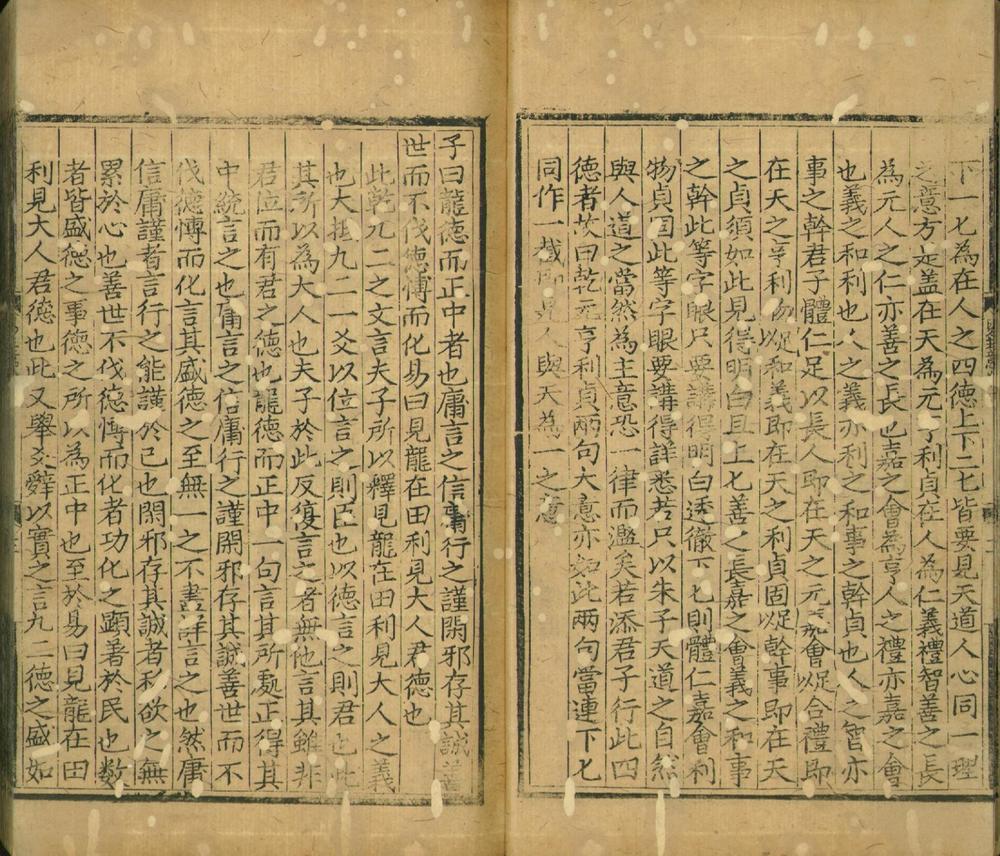 下一七為在人之四德上下二七皆要見天道人心同一理
之意方是盖在天為元亨利貞在人為仁義禮智善之長
為元人之仁亦善之長也嘉之會為亨人之禮亦嘉之會
也義之和利也人之義亦利之和事之幹貞也人之智亦
事之幹君子體仁足以長人即在天之元嘉會足以合禮即
在天之亨利物足以和義即在天之利貞固足以幹事即在天
之貞須如此見得明白且上七善之長嘉之會義之和事
之幹此等字眼只要講得明白透徹下七則體仁嘉會利
物貞固此等字眼要講得詳悉若只以朱子天道之自然
與人道之當然為主意恐一律而濫矣若添君子行此四
德者故曰乾元亨利貞兩句大意亦如此兩句當連下七
同作一截即見人與天為一之意
子曰龍德而正中者也庸言之信庸行之謹閑邪存其誠善
世而不伐德博而化易曰見龍在田利見大人君德也
此乾九二之文言夫子所以釋見龍在田利見大人之義
也大抵九二一爻以位言之則臣也以德言之則君也此
其所以為大人也夫子於此反復言之者無他言其雖非
君位而有君之德也龍德而正中一句言其所處正得其
中統言之也庸言之信庸行之謹閑邪存其誠善世而不
伐德博而化言其盛德之至無一之不盡詳言之也然庸
信庸謹者言行之能謹於己也閑邪存其誠者私欲之無
累於心也善世不伐德博而化者功化之顯著於民也數
者皆盛德之事德之所以為正中也至於易曰見龍在田
利見大人君德也此又舉爻辭以實之言九二德之盛如